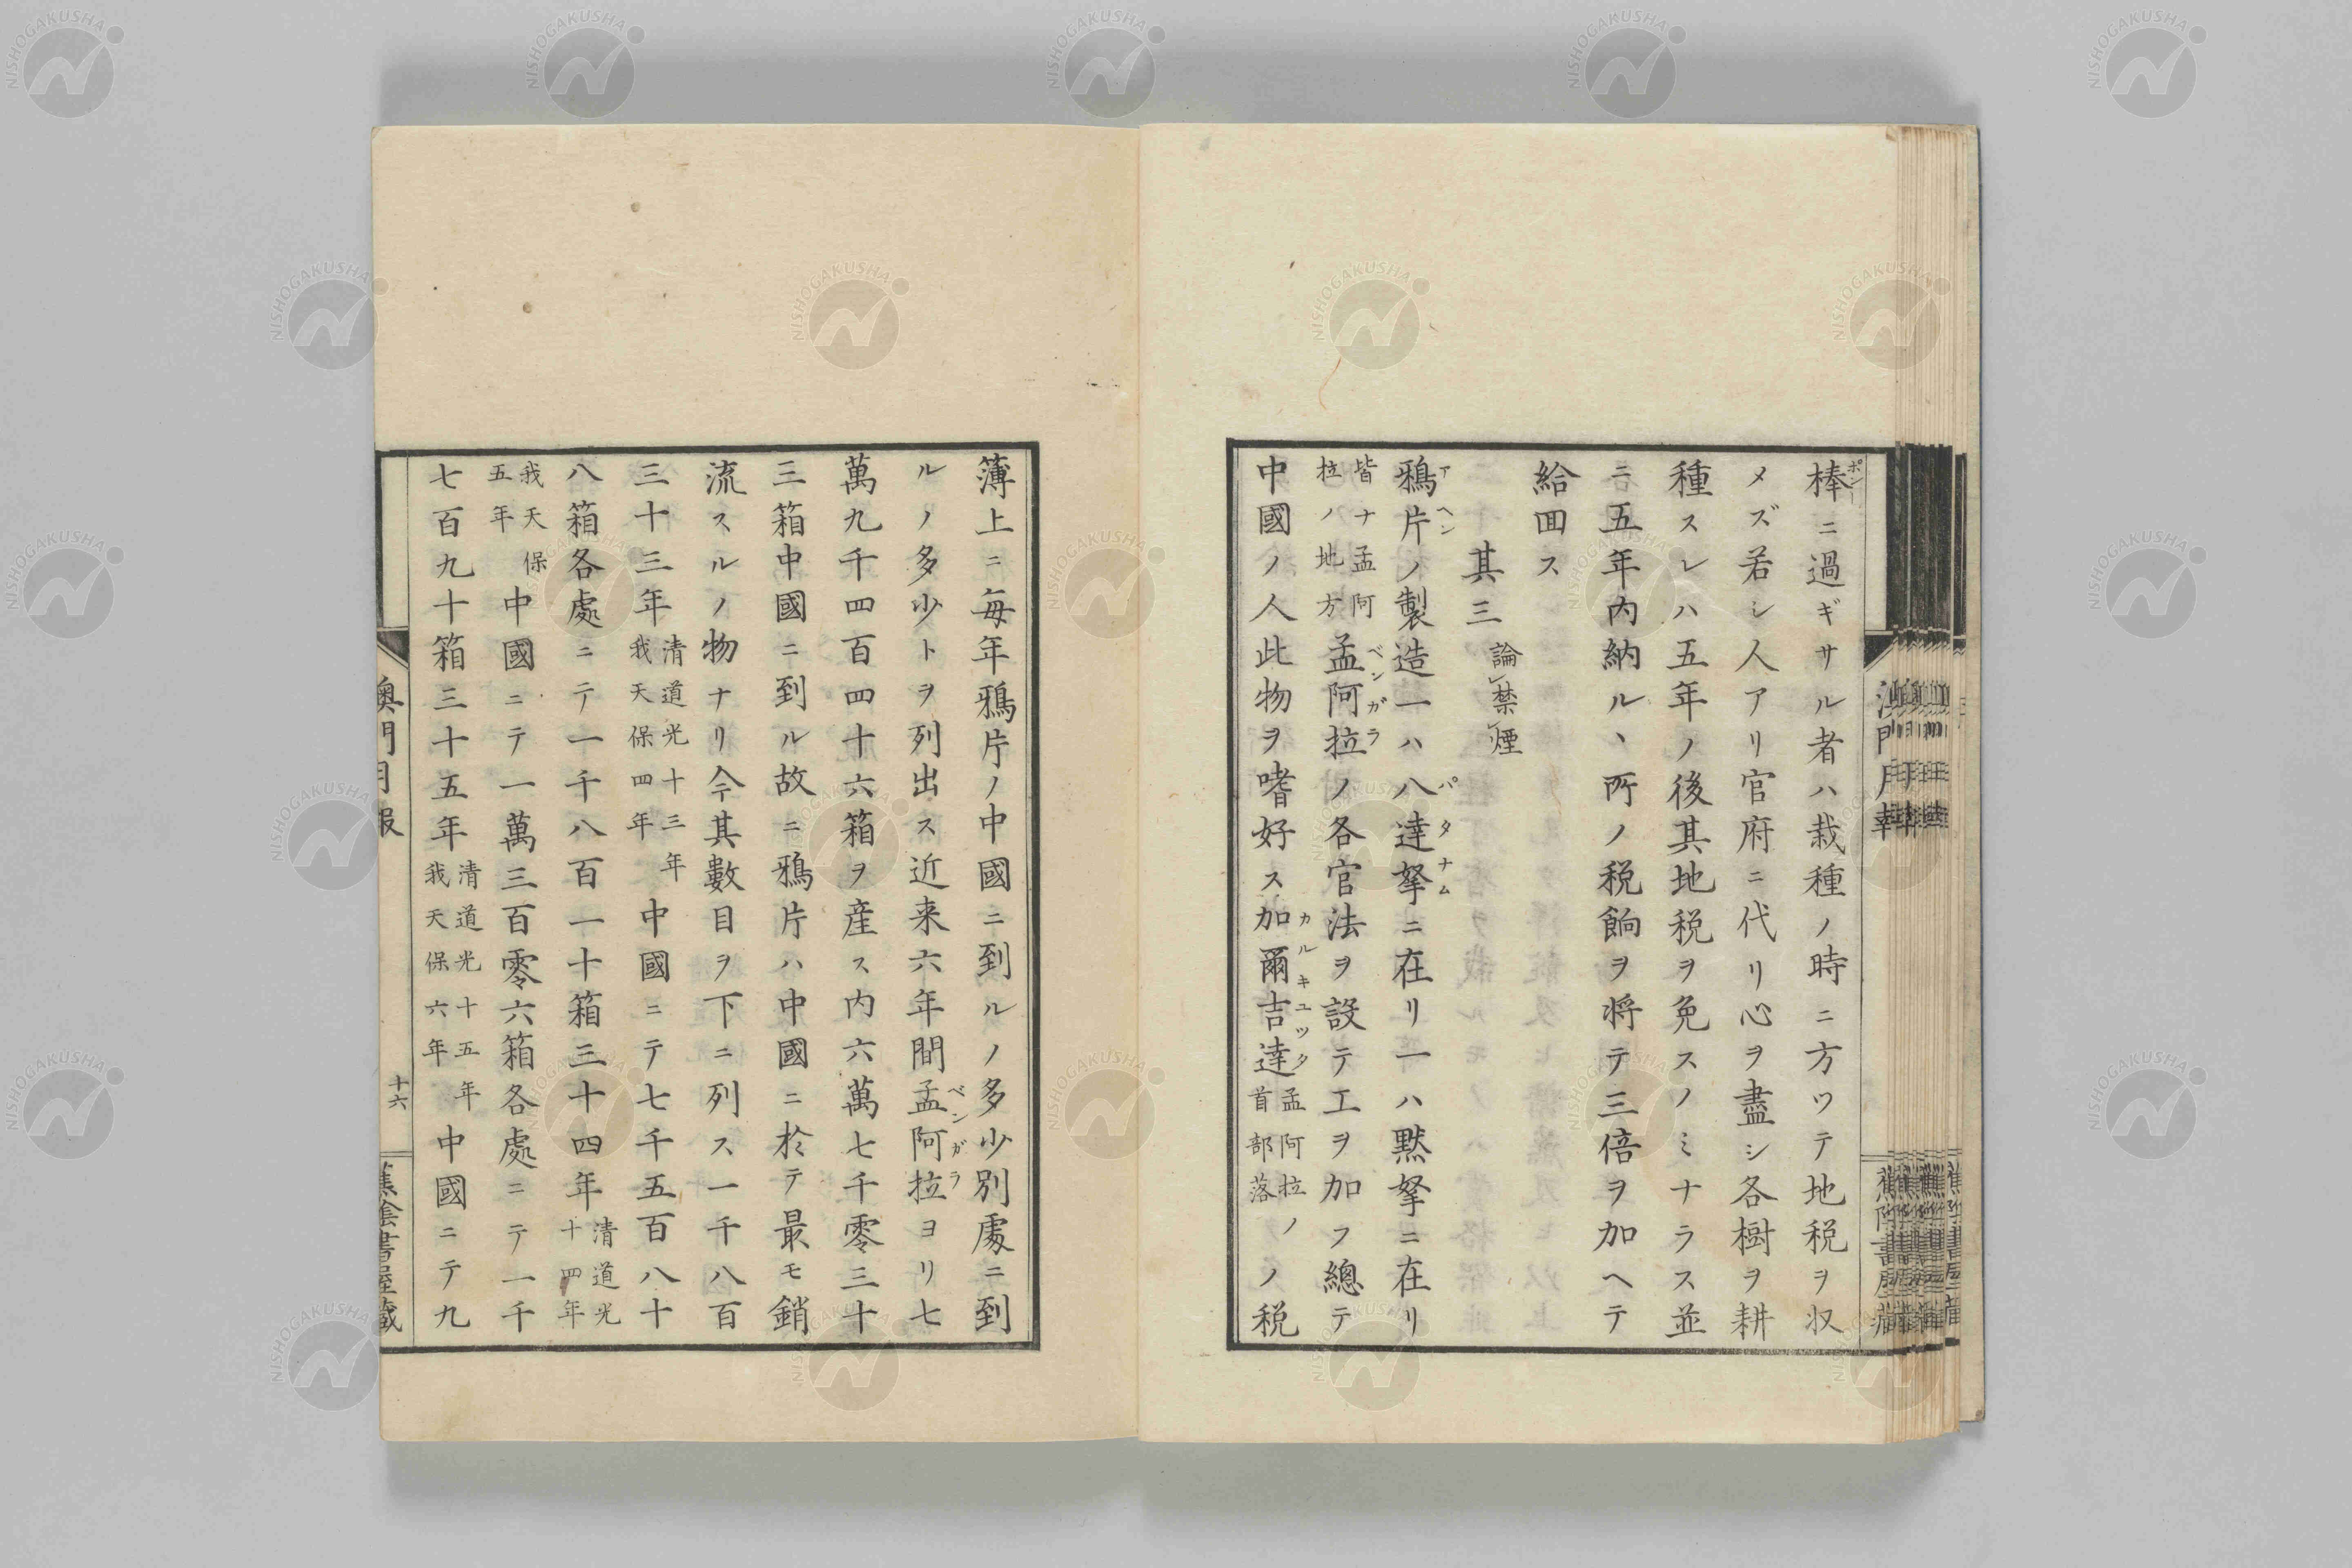 棒ニ過ギサル者ハ栽種ノ時ニ方ワテ地税ヲ収
ポンド
メズ若シ人アリ官府ニ代リ心ヲ盡シ各樹ヲ耕
種スレハ五年ノ後其地税ヲ免スノミナラス並
ニ五年内納ル丶所ノ税餉ヲ将テ三倍ヲ加ヘテ
給回ス
其三 論禁煙
鴉片ノ製造一ハ八達拏ニ在リ一ハ黙拏ニ在リ
アヘン パタナム
皆ナ孟阿
拉ノ地方
孟阿拉ノ各官法ヲ設テ工ヲ加フ總テ
ベンガラ
中國ノ人此物ヲ嗜好ス加爾吉達
カルキユツタ
孟阿拉ノ
首部落
ノ税
簿上ニ毎年鴉片ノ中國ニ到ルノ多少別處ニ到
ルノ多少トヲ列出ス近来六年間孟阿拉ヨリ七
ベンガラ
萬九千四百四十六箱ヲ産ス内六萬七千零三十
三箱中國ニ到ル故ニ鴉片ハ中國ニ於テ最モ銷
流スルノ物ナリ今其數目ヲ下ニ列ス一千八百
三十三年
清道光十三年
我天保四年
中國ニテ七千五百八十
八箱各處ニテ一千八百一十箱三十四年
清道光
十四年
我天保
五年
中國ニテ一萬三百零六箱各處ニテ一千
七百九十箱三十五年
清道光十五年
我天保六年
中國ニテ九
澳門月報
十六
蕉陰書屋藏
NISHOGAKUSHA